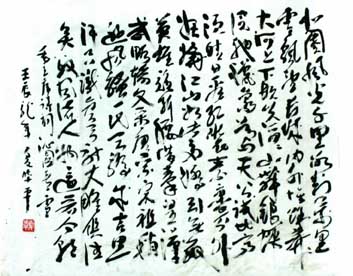 北國風光千里冰封萬里
雪飄望長城内外惟餘莽莽
大河上下頓失滔滔山舞銀蛇
原馳蠟象欲與天公試比高
須晴日看紅裝素裹分外
妖嬈江山如此多嬌引無數
英雄競折腰惜秦皇漢
武略輸文采唐宗宋祖稍
遜風騷一代天驕成吉思
汗只識彎弓射大雕俱往
矣數風流人物還看今朝
毛主席詩詞沁園春雪
壬辰龍年